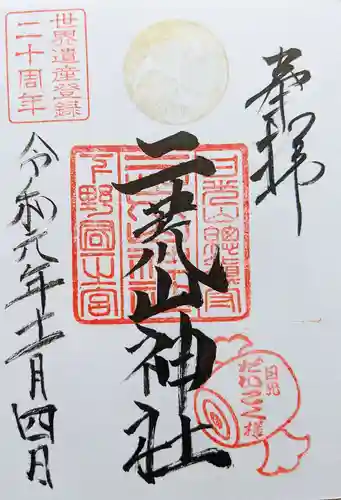 奉拝
日光山総鎮守
二荒山神社
下野國一宮
日光
だいこく様
世界遺産登録
二十周年
令和元年十一月四日